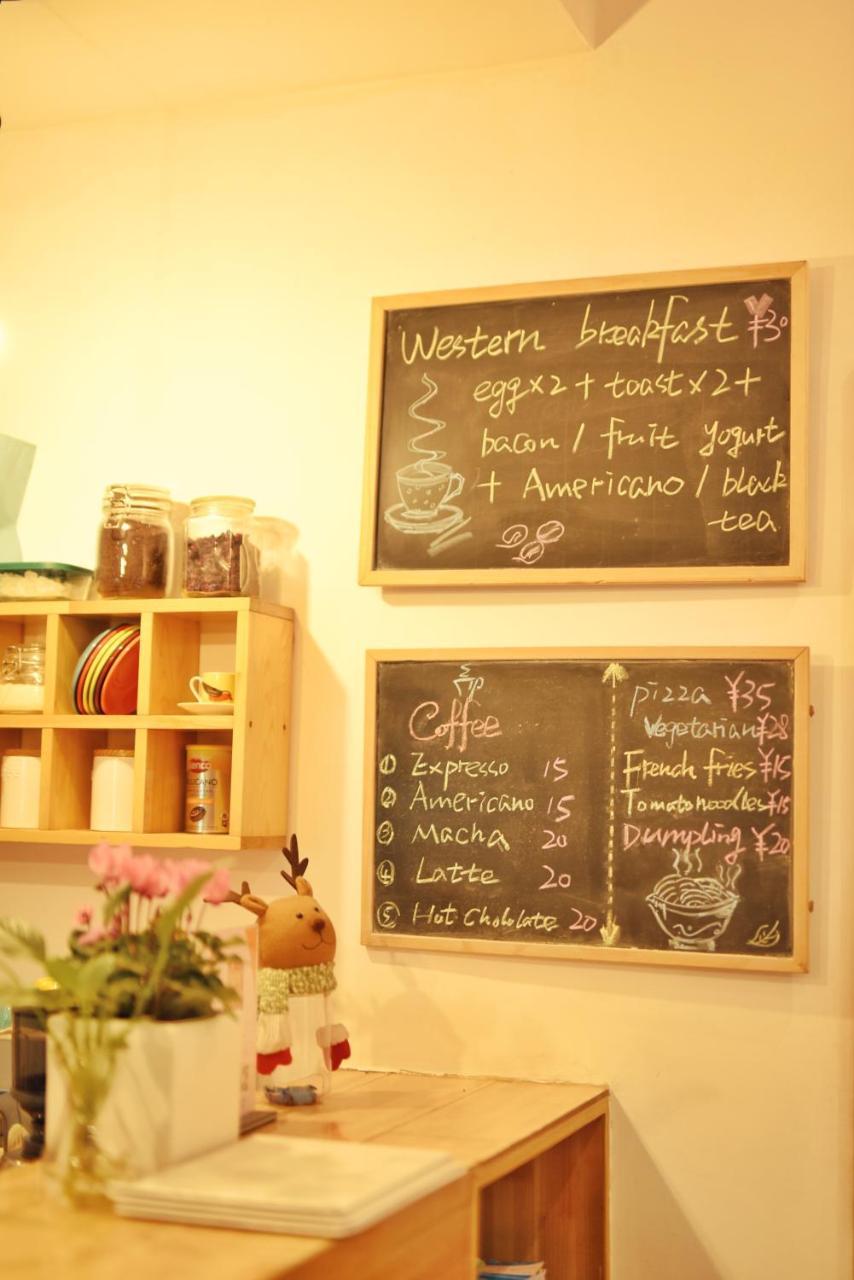 Western breakfast ¥30
egg×2+toast×2+
bacon / fruit yogurt
+ Americano / black
tea
Coffee
① Expresso 15
② Americano 15
③ Macha 20
④ Latte 20
⑤ Hot Chololate 20
pizza ¥35
Vegetarian ¥28
French fries ¥15
Tomato noodles ¥15
Dumpling ¥20